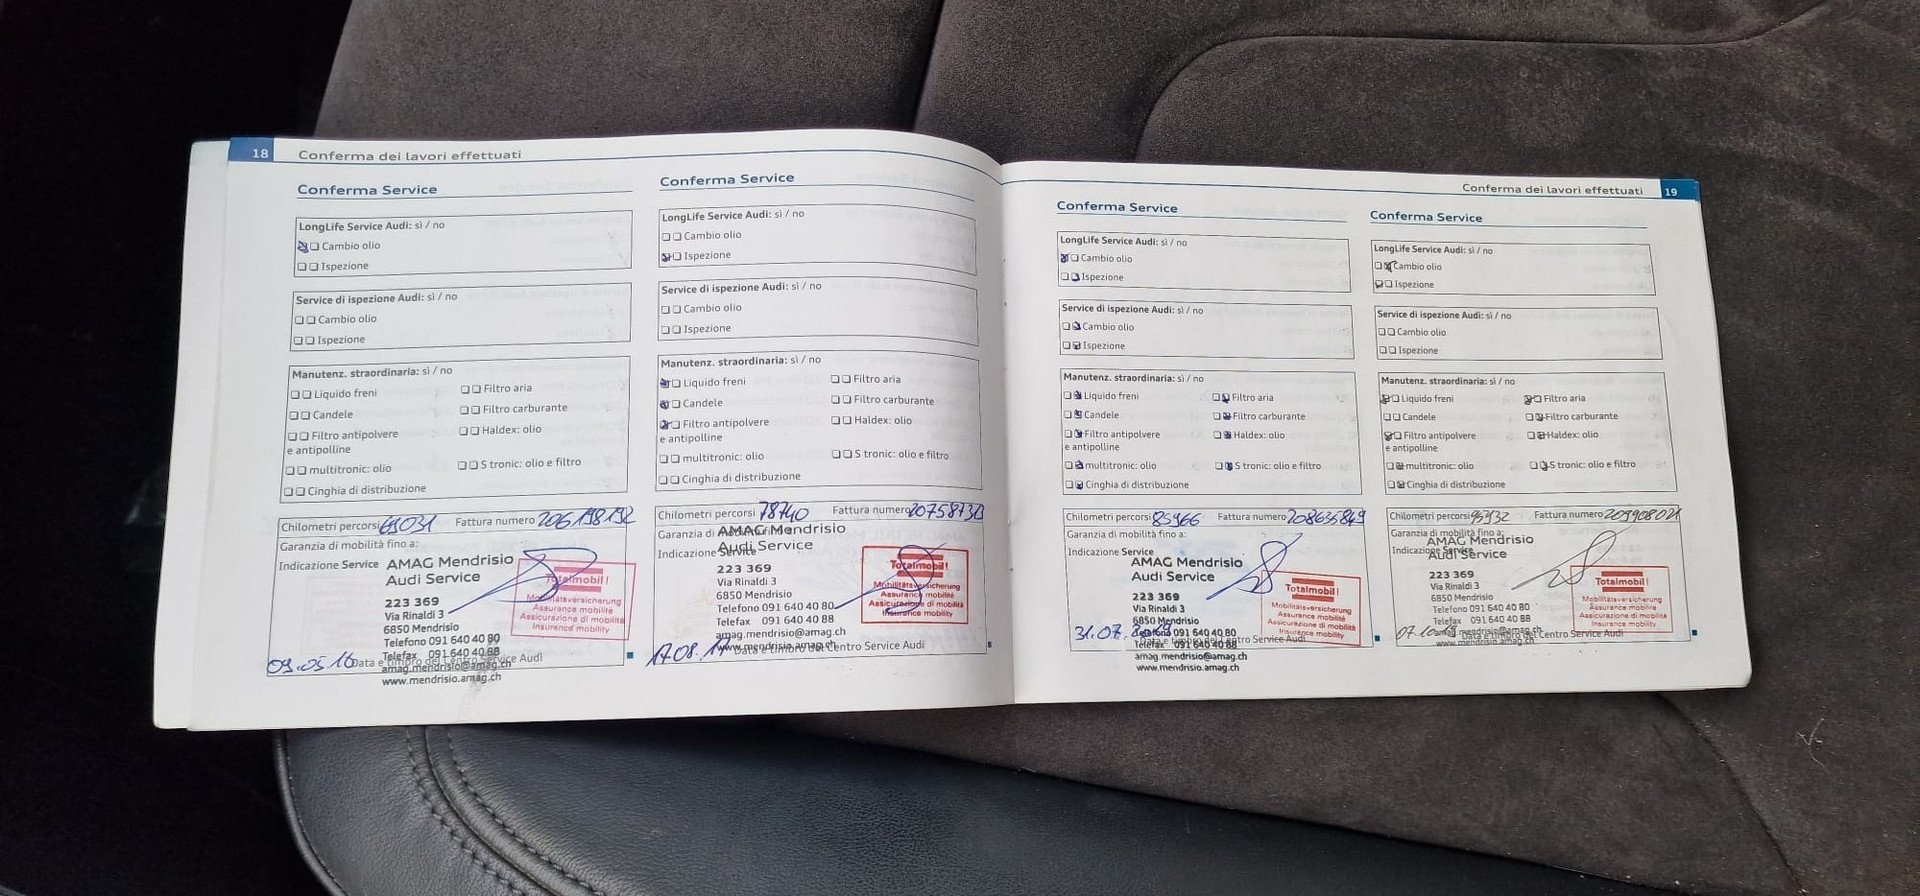 18 Conferma dei lavori effettuati
Conferma Service
LongLife Service Audi: sì / no
Cambio olio
Ispezione
Service di ispezione Audi: sì / no
Cambio olio
Ispezione
Manutenz. straordinaria: sì / no
Liquido freni Filtro aria
Candele Filtro carburante
Filtro antipolvere Haldex: olio
e antipolline
multitronic: olio S tronic: olio e filtro
Cinghia di distribuzione
Chilometri percorsi 69031 Fattura numero 206198192
Garanzia di mobilità fino a:
Indicazione Service
AMAG Mendrisio
Audi Service
223 369
Via Rinaldi 3
6850 Mendrisio
Telefono 091 640 40 80
Telefax 091 640 40 88
amag.mendrisio@amag.ch
www.mendrisio.amag.ch
Totalmobil!
Mobilitätsversicherung
Assurance mobilité
Assicurazione di mobilità
Insurance mobility
09.05.16 Data e timbro del Centro Service Audi
Conferma Service
LongLife Service Audi: sì / no
Cambio olio
Ispezione
Service di ispezione Audi: sì / no
Cambio olio
Ispezione
Manutenz. straordinaria: sì / no
Liquido freni Filtro aria
Candele Filtro carburante
Filtro antipolvere Haldex: olio
e antipolline
multitronic: olio S tronic: olio e filtro
Cinghia di distribuzione
Chilometri percorsi 78740 Fattura numero
Garanzia di
Indicazione Service
AMAG Mendrisio
Audi Service
223 369
Via Rinaldi 3
6850 Mendrisio
Telefono 091 640 40 80
Telefax 091 640 40 88
amag.mendrisio@amag.ch
www.mendrisio.amag.ch
Totalmobil!
Mobilitätsversicherung
Assurance mobilité
Assicurazione di mobilità
Insurance mobility
17.08.17 Data e timbro del Centro Service Audi
Conferma dei lavori effettuati 19
Conferma Service
LongLife Service Audi: sì / no
Cambio olio
Ispezione
Service di ispezione Audi: sì / no
Cambio olio
Ispezione
Manutenz. straordinaria: sì / no
Liquido freni Filtro aria
Candele Filtro carburante
Filtro antipolvere Haldex: olio
e antipolline
multitronic: olio S tronic: olio e filtro
Cinghia di distribuzione
Chilometri percorsi 85966 Fattura numero 208635849
Garanzia di mobilità fino a:
Indicazione Service
AMAG Mendrisio
Audi Service
223 369
Via Rinaldi 3
6850 Mendrisio
Telefono 091 640 40 80
Telefax 091 640 40 88
amag.mendrisio@amag.ch
www.mendrisio.amag.ch
Totalmobil!
Mobilitätsversicherung
Assurance mobilité
Assicurazione di mobilità
Insurance mobility
31.07. Data e timbro del Centro Service Audi
Conferma Service
LongLife Service Audi: sì / no
Cambio olio
Ispezione
Service di ispezione Audi: sì / no
Cambio olio
Ispezione
Manutenz. straordinaria: sì / no
Liquido freni Filtro aria
Candele Filtro carburante
Filtro antipolvere Haldex: olio
e antipolline
multitronic: olio S tronic: olio e filtro
Cinghia di distribuzione
Chilometri percorsi 95932 Fattura numero 209908021
Garanzia di mobilità fino a:
Indicazione Service
AMAG Mendrisio
Audi Service
223 369
Via Rinaldi 3
6850 Mendrisio
Telefono 091 640 40 80
Telefax 091 640 40 88
amag.mendrisio@amag.ch
www.mendrisio.amag.ch
Totalmobil!
Mobilitätsversicherung
Assurance mobilité
Assicurazione di mobilità
Insurance mobility
Data e timbro del Centro Service Audi